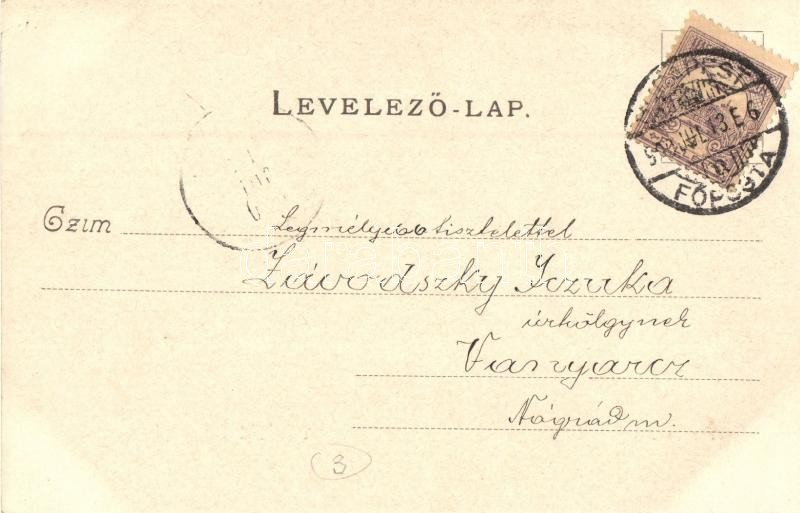 LEVELEZŐ-LAP.
PEST
FŐPOSTA
Czím Legmélyebb tisztelettel
Závodszky Iczuka
úrhölgynek
Vanyarcz
Nógrád m.
3